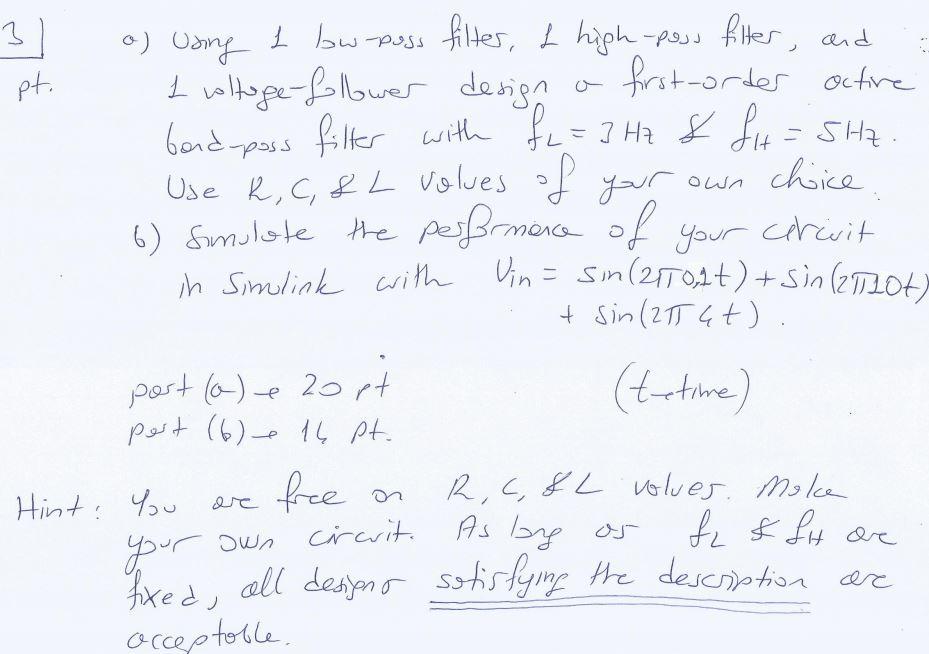 3] a) Using 1 low-pass filter, 1 high-pass filter, and
pt. 1 voltage-follower design a first-order active
band-pass filter with fL = 3 Hz & fH = 5 Hz.
Use R, C, & L values of your own choice.
b) Simulate the performance of your circuit
in Simulink with Vin = sin(2π0,1t) + sin(2π10t)
+ sin(2π4t).
part (a) → 20 pt (t→time)
part (b) → 14 pt.
Hint: You are free on R, C, & L values. Make
your own circuit. As long as fL & fH are
fixed, all designs satisfying the description are
acceptable.